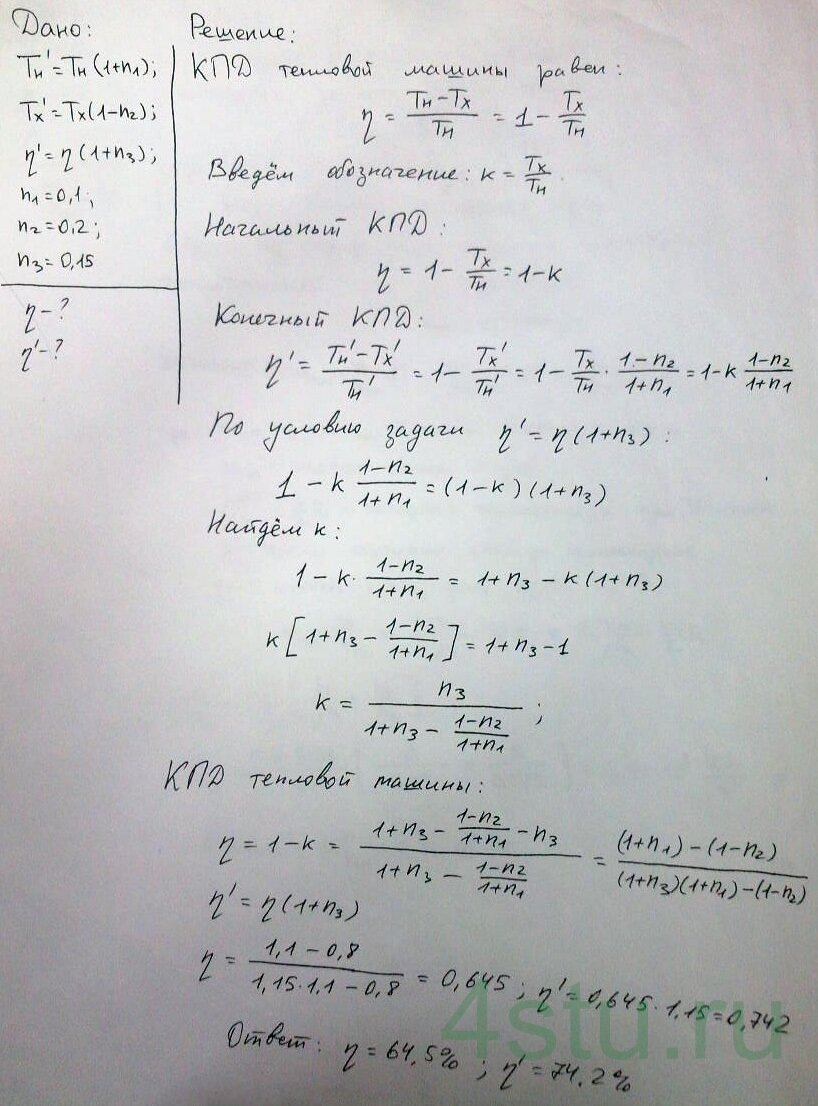 Дано:
Tн' = Tн(1+n₁);
Tх' = Tх(1-n₂);
η' = η(1+n₃);
n₁=0,1;
n₂=0,2;
n₃=0,15
η-?
η'-?
Решение:
КПД тепловой машины равен:
η = (Tн-Tх)/Tн = 1 - Tх/Tн
Введём обозначение: k = Tх/Tн.
Начальный КПД:
η = 1 - Tх/Tн = 1-k
Конечный КПД:
η' = (Tн'-Tх')/Tн' = 1 - Tх'/Tн' = 1 - Tх/Tн · (1-n₂)/(1+n₁) = 1-k (1-n₂)/(1+n₁)
По условию задачи η' = η(1+n₃):
1 - k (1-n₂)/(1+n₁) = (1-k)(1+n₃)
Найдём k:
1 - k · (1-n₂)/(1+n₁) = 1+n₃ - k(1+n₃)
k[1+n₃ - (1-n₂)/(1+n₁)] = 1+n₃-1
k = n₃/(1+n₃ - (1-n₂)/(1+n₁));
КПД тепловой машины:
η = 1-k = (1+n₃ - (1-n₂)/(1+n₁) - n₃)/(1+n₃ - (1-n₂)/(1+n₁)) = ((1+n₁)-(1-n₂))/((1+n₃)(1+n₁)-(1-n₂))
η' = η(1+n₃)
η = (1,1-0,8)/(1,15·1,1-0,8) = 0,645; η' = 0,645·1,15=0,742
Ответ: η = 64,5%; η' = 74,2%
4stu.ru